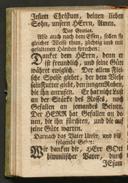 Jesum Christum, deinen lieben
Sohn, unsern HErrn, Amen.
Das Gratias.
Also auch nach dem Essen, sollen sie
gleicher Weise thun, züchtig und mit
gefaltenen Händen sprechen:
Danket dem HErrn, denn er
ist freundlich, und seine Güte
währet ewiglich. Der allem Flei-
sche Speise giebet, der dem Viehe
sein Futter giebet, den jungen Raben,
die ihn anruffen. Er hat nicht Lust
an der Stärcke des Rosses, noch Ge-
fallen an jemandes Beinen.
Der HERR hat Gefallen an de-
nen, die ihn fürchten, und die auf
seine Güte warten.
Darnach das Vater Unser, und diß
folgende Gebet:
Wir dancken dir, HErr GOtt
himmlischer Vater, durch
JEsum